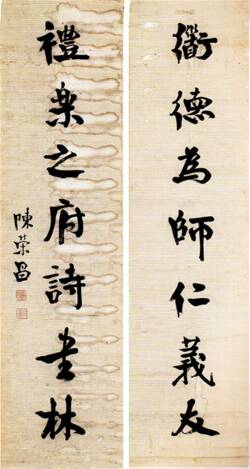 衜德為師仁義友
禮樂之府詩書林
陳榮昌